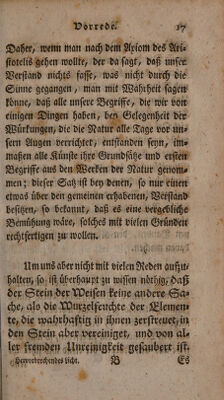 Vorrede. 17
Daher, wenn man nach dem Axiom des Ari-
stotelis gehen wollte, der da sagt, daß unser
Verstand nichts fasse, was nicht durch die
Sinne gegangen, man mit Wahrheit sagen
könne, daß alle unsere Begriffe, die wir von
einigen Dingen haben, bey Gelegenheit der
Würkungen, die die Natur alle Tage vor un-
sern Augen verrichtet, entstanden seyn, im-
maßen alle Künste ihre Grundsätze und ersten
Begriffe aus den Werken der Natur genom-
men; dieser Satz ist bey denen, so nur einen
etwas über den gemeinen erhabenen, Verstand
besitzen, so bekannt, daß es eine vergebliche
Bemühung wäre, solches mit vielen Gründen
rechtfertigen zu wollen.
Um uns aber nicht mit vielen Reden aufzu-
halten, so ist überhaupt zu wissen nöthig, daß
der Stein der Weisen keine andere Sa-
che, als die Wurzelfeuchte der Elemen-
te, die wahrhaftig in ihnen zerstreuet, in
den Stein aber vereiniget, und von al-
ler fremden Unreinigkeit gesäubert ist.
Hervorbrechendes Licht. B Es